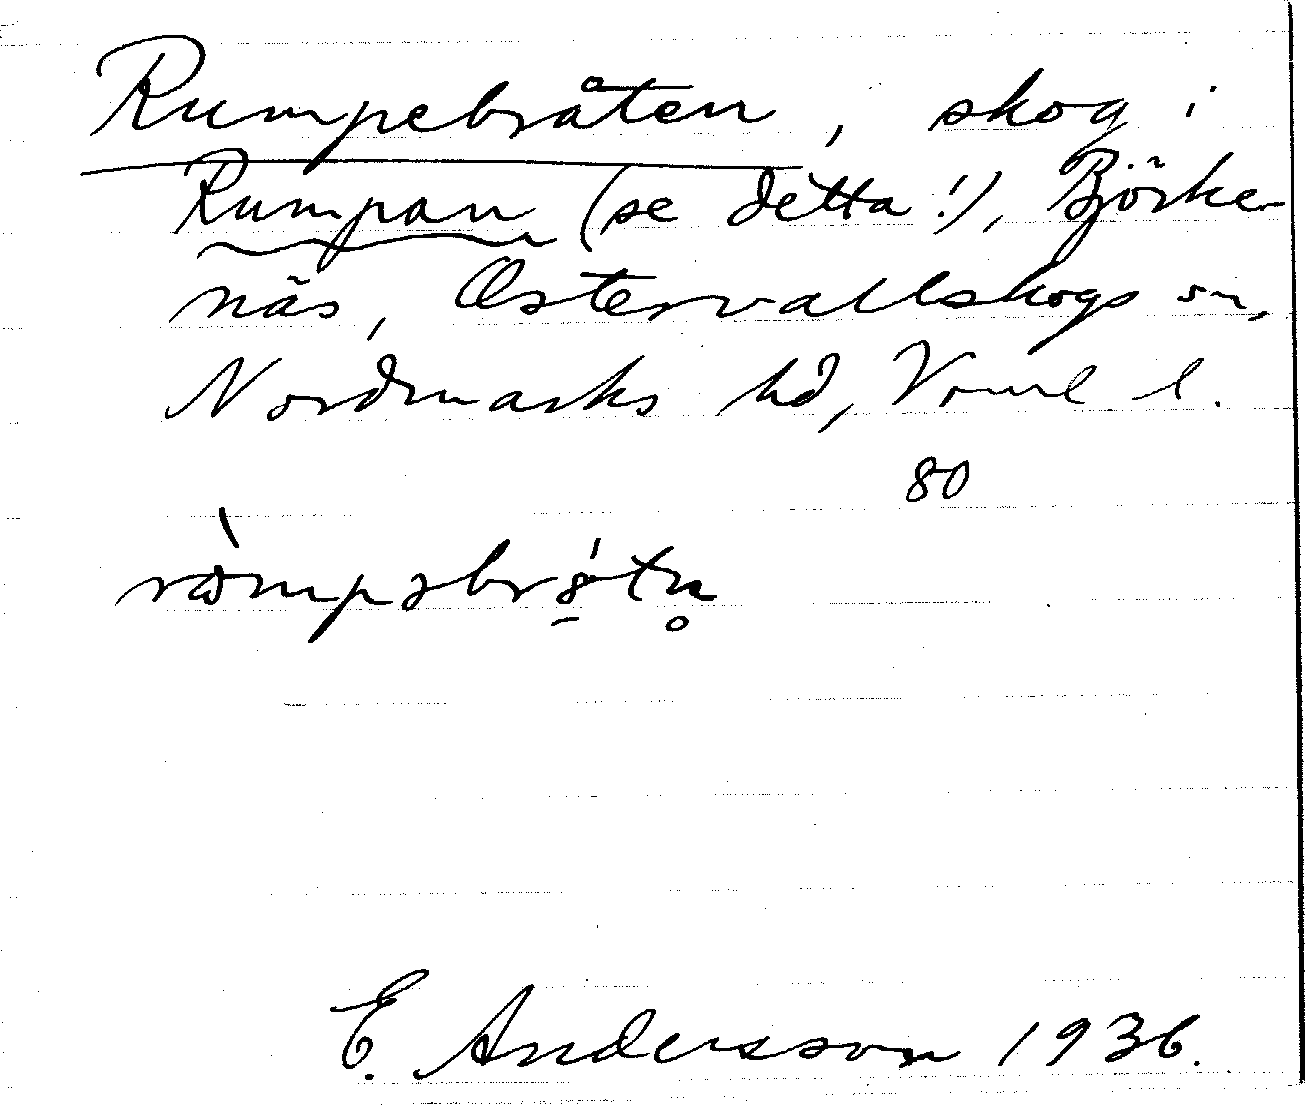 Rumpebråten, skog i
Rumpan (se detta!), Björke-
näs, Östervallskogs sn,
Nordmarks hd, Värml l.
80
E. Andersson 1936.